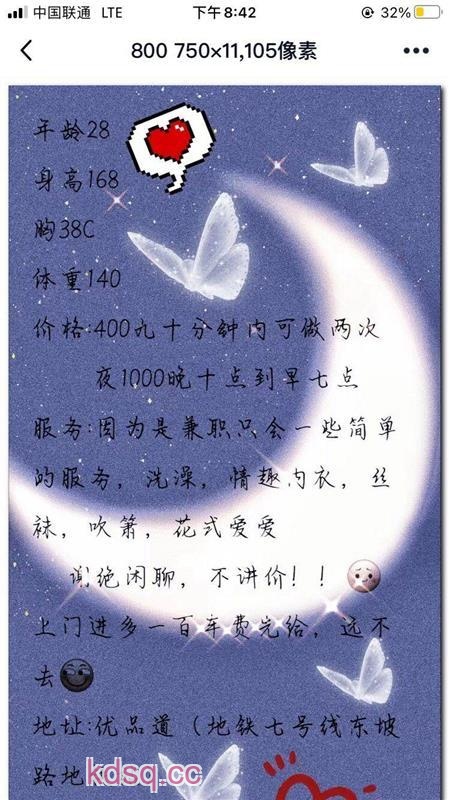 中国联通 LTE 下午8:42 32%
800 750×11,105像素
年龄28
身高168
胸38C
体重140
价格:400九十分钟内可做两次
夜1000晚十点到早七点
服务:因为是兼职只会一些简单
的服务，洗澡，情趣内衣，丝
袜，吹箫，花式爱爱
谢绝闲聊，不讲价！！
上门进多一百车费先给，远不
去
地址:优品道（地铁七号线东坡
路地
kdsq.cc